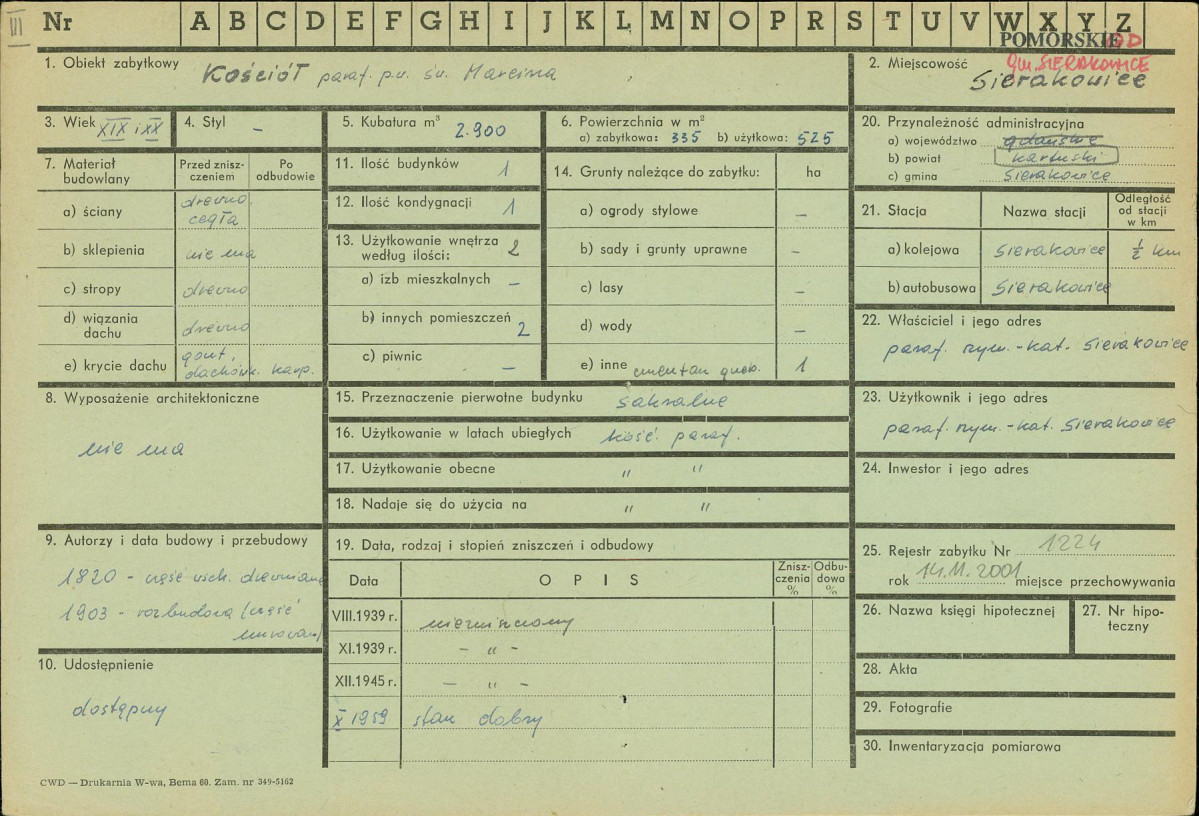 III
Nr A B C D E F G H I J K L M N O P R S T U V W X Y Z
POMORSKIE
gm. SIERAKOWICE
1. Obiekt zabytkowy Kościół paraf. p.w. św. Marcina
2. Miejscowość Sierakowice
3. Wiek XIX i XX
4. Styl –
5. Kubatura m³ 2.900
6. Powierzchnia w m²
a) zabytkowa: 335 b) użytkowa: 525
20. Przynależność administracyjna
a) województwo gdańskie
b) powiat kartuski
c) gmina Sierakowice
7. Materiał budowlany
Przed zniszczeniem
Po odbudowie
a) ściany drewno, cegła
b) sklepienia nie ma
c) stropy drewno
d) wiązania dachu drewno
e) krycie dachu gont, dachówk. karp.
11. Ilość budynków 1
12. Ilość kondygnacji 1
13. Użytkowanie wnętrza według ilości: 2
a) izb mieszkalnych –
b) innych pomieszczeń 2
c) piwnic –
14. Grunty należące do zabytku: ha
a) ogrody stylowe –
b) sady i grunty uprawne –
c) lasy –
d) wody –
e) inne cmentarz 1
21. Stacja
Nazwa stacji
Odległość od stacji w km
a) kolejowa Sierakowice ½ km
b) autobusowa Sierakowice
22. Właściciel i jego adres
paraf. rzym.-kat. Sierakowice
8. Wyposażenie architektoniczne
nie ma
15. Przeznaczenie pierwotne budynku sakralne
16. Użytkowanie w latach ubiegłych kość. paraf.
17. Użytkowanie obecne " "
18. Nadaje się do użycia na " "
23. Użytkownik i jego adres
paraf. rzym.-kat. Sierakowice
24. Inwestor i jego adres
9. Autorzy i data budowy i przebudowy
1820 - część wsch. drewniana
1903 - rozbudowa (część
murowana)
19. Data, rodzaj i stopień zniszczeń i odbudowy
Data
OPIS
Zniszczenia %
Odbudowa %
VIII.1939 r. niezniszczony
XI.1939 r. – " –
XII.1945 r. – " –
X 1959 stan dobry
25. Rejestr zabytku Nr 1224
rok 14.11.2001 miejsce przechowywania
26. Nazwa księgi hipotecznej
27. Nr hipoteczny
10. Udostępnienie
dostępny
28. Akta
29. Fotografie
30. Inwentaryzacja pomiarowa
CWD — Drukarnia W-wa, Bema 60. Zam. nr 349-5162